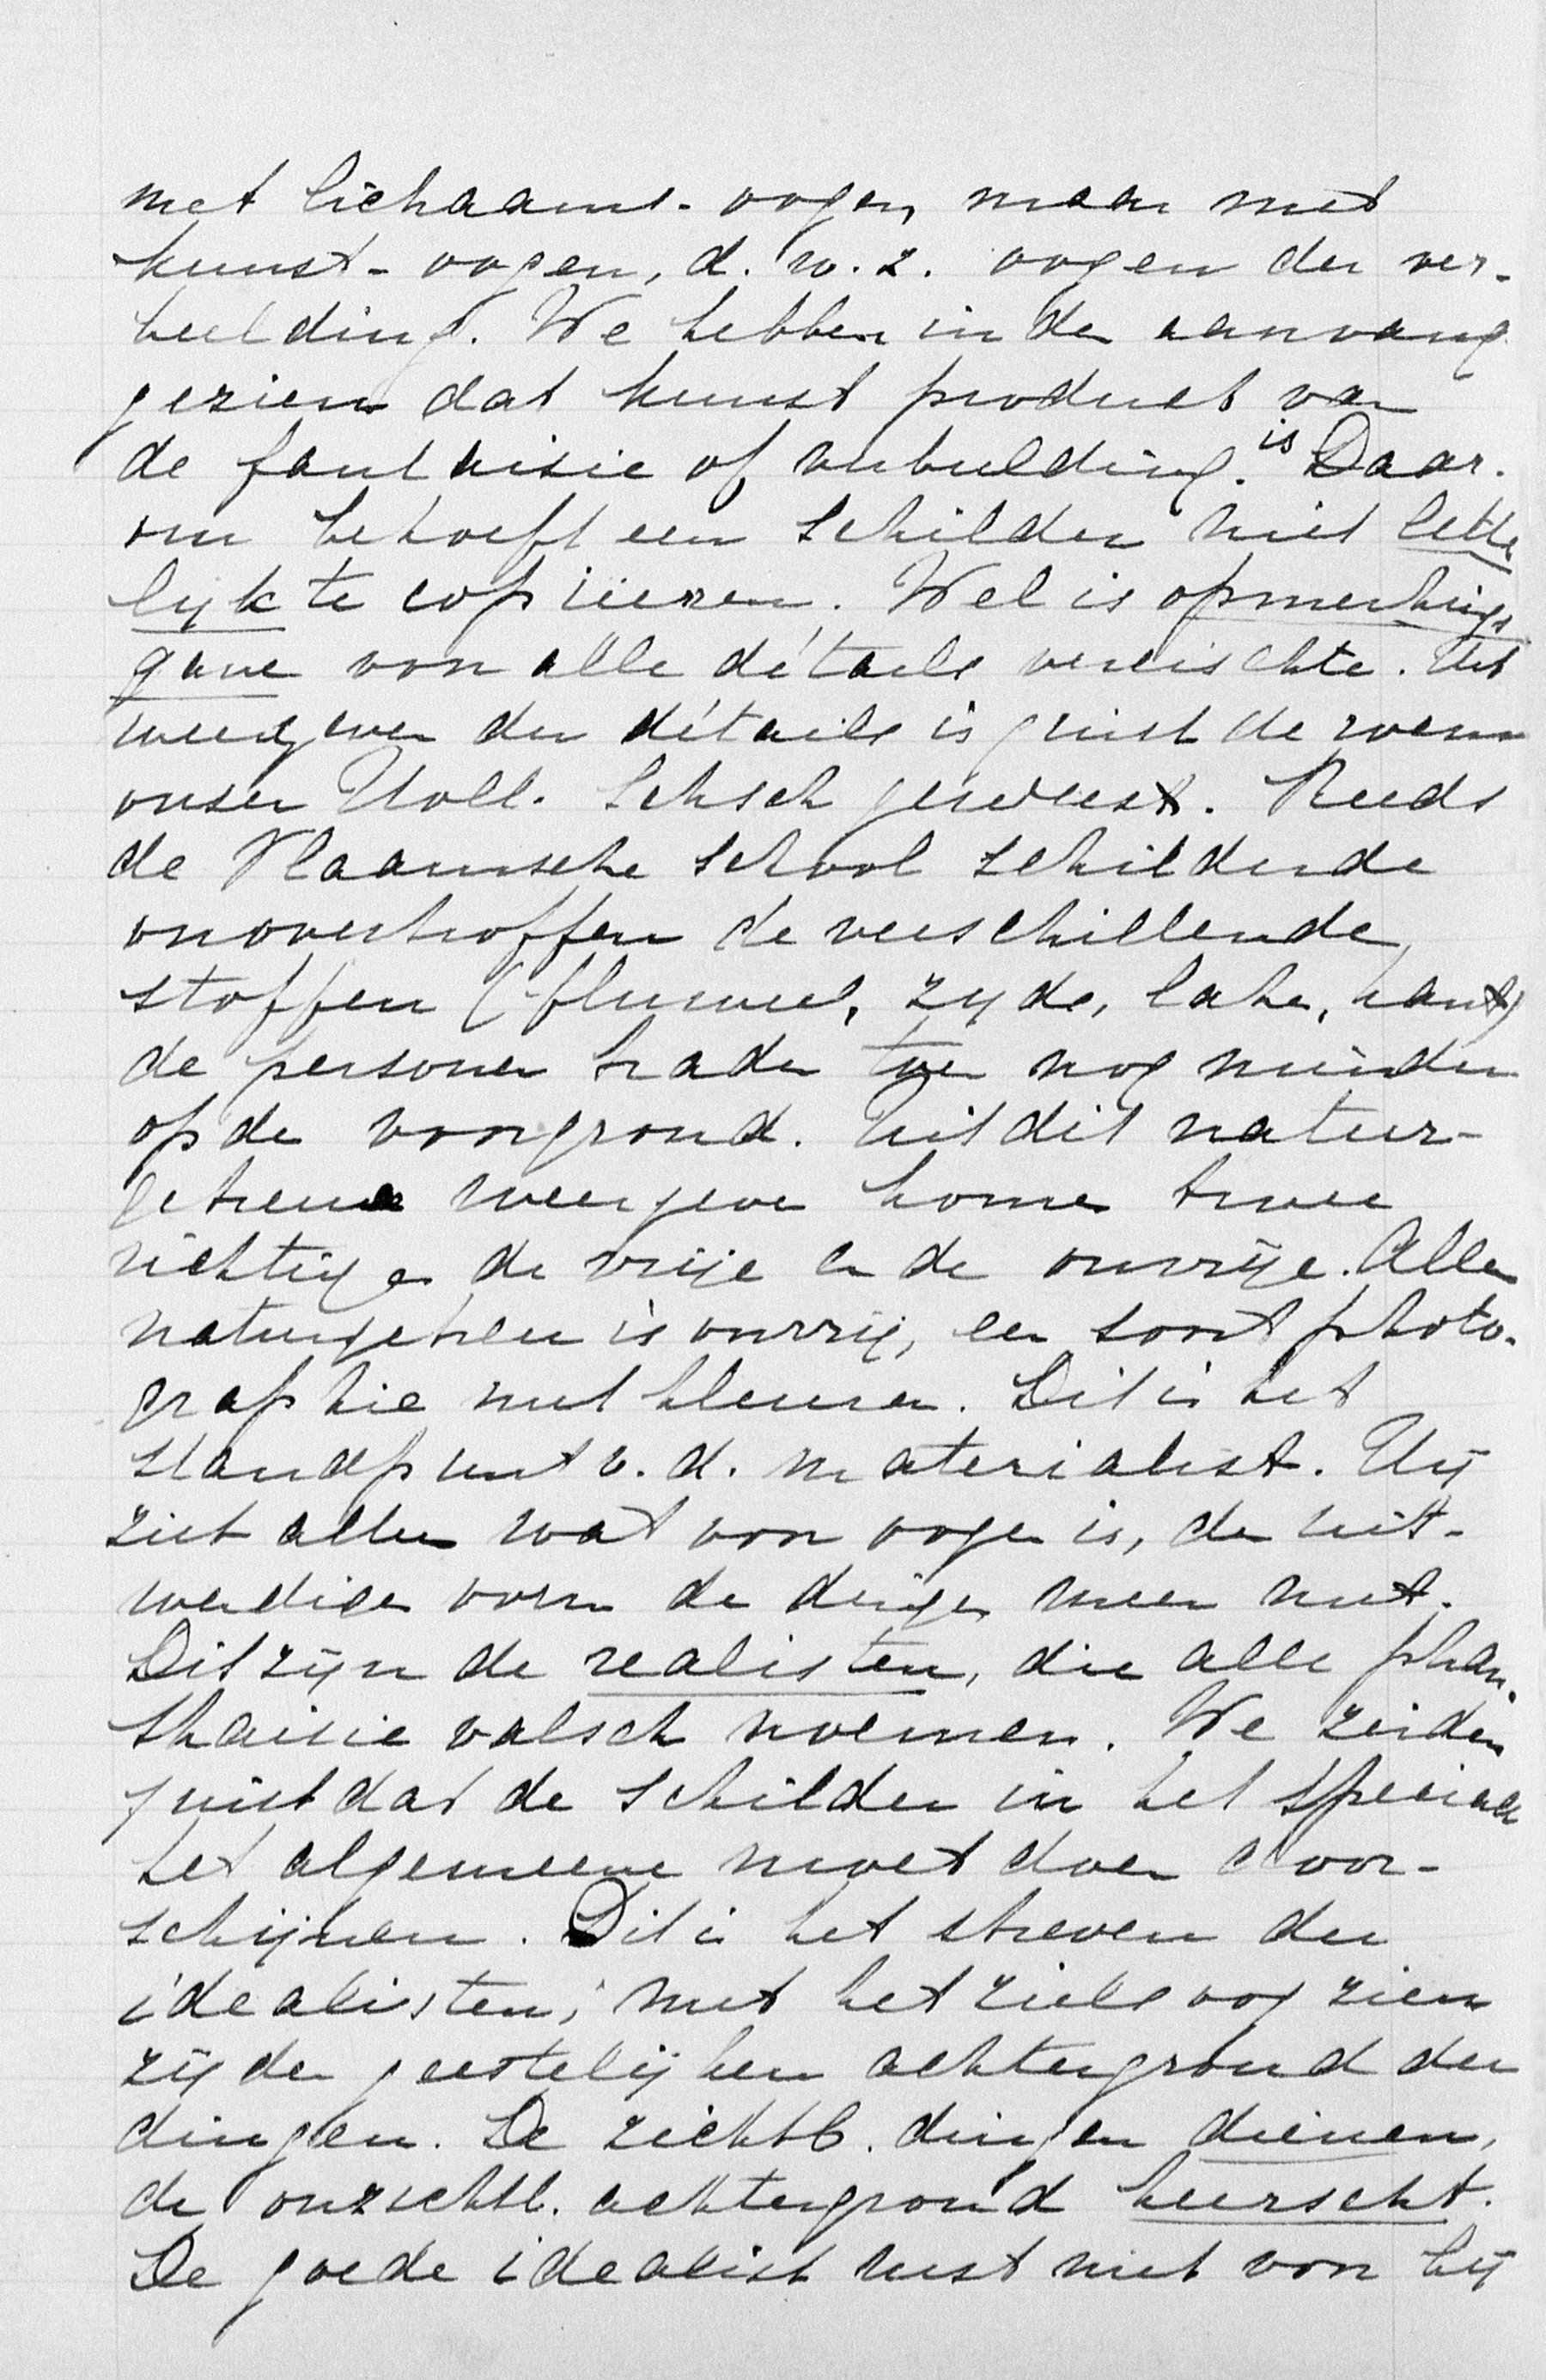 met lichaams-oogen maar met
kunst-oogen, d.w.z. oogen der ver-
beelding. We hebben in den aanvang
gezien dat kunst product van
de fanthaisie of verbeelding. is Daar-
om behoeft een schilder niet lette
lyk te copiieeren. Wel is opmerkings
gave voor alle détails vereischte. Het
weergeven der détails is juist de roem
onzer Holl. Schsch geweest. Reeds
de Vlaamsche School schilderde
onovertroffen de verschillende
stoffen (fluweel, zyde, laken, kant)
de personen traden toen nog minder
op de voorgrond. Uit dit natuur-
getrouwe weergeven komen twee
richtingen de vrije en de onvrije. Alleen
natuurgetrouw is onvrij, een soort photo-
graphie met kleuren. Dit is het
standpunt v.d. materialist. Hij
ziet alleen wat voor oogen is, den uit-
wendigen vorm der dingen meer niet.
Dit zijn de realisten, die alle phan-
thaisie valsch noemen. We zeiden
juist dat de schilder in het speciale
het algemeene moet doen door-
schijnen. Dit is het streven der
idealisten; met het zielsoog zien
zij den geestelijken achtergrond der
dingen. De zichtb. dingen dienen,
de onzichtb. achtergrond heerscht.
De goede idealist rust niet voor hij